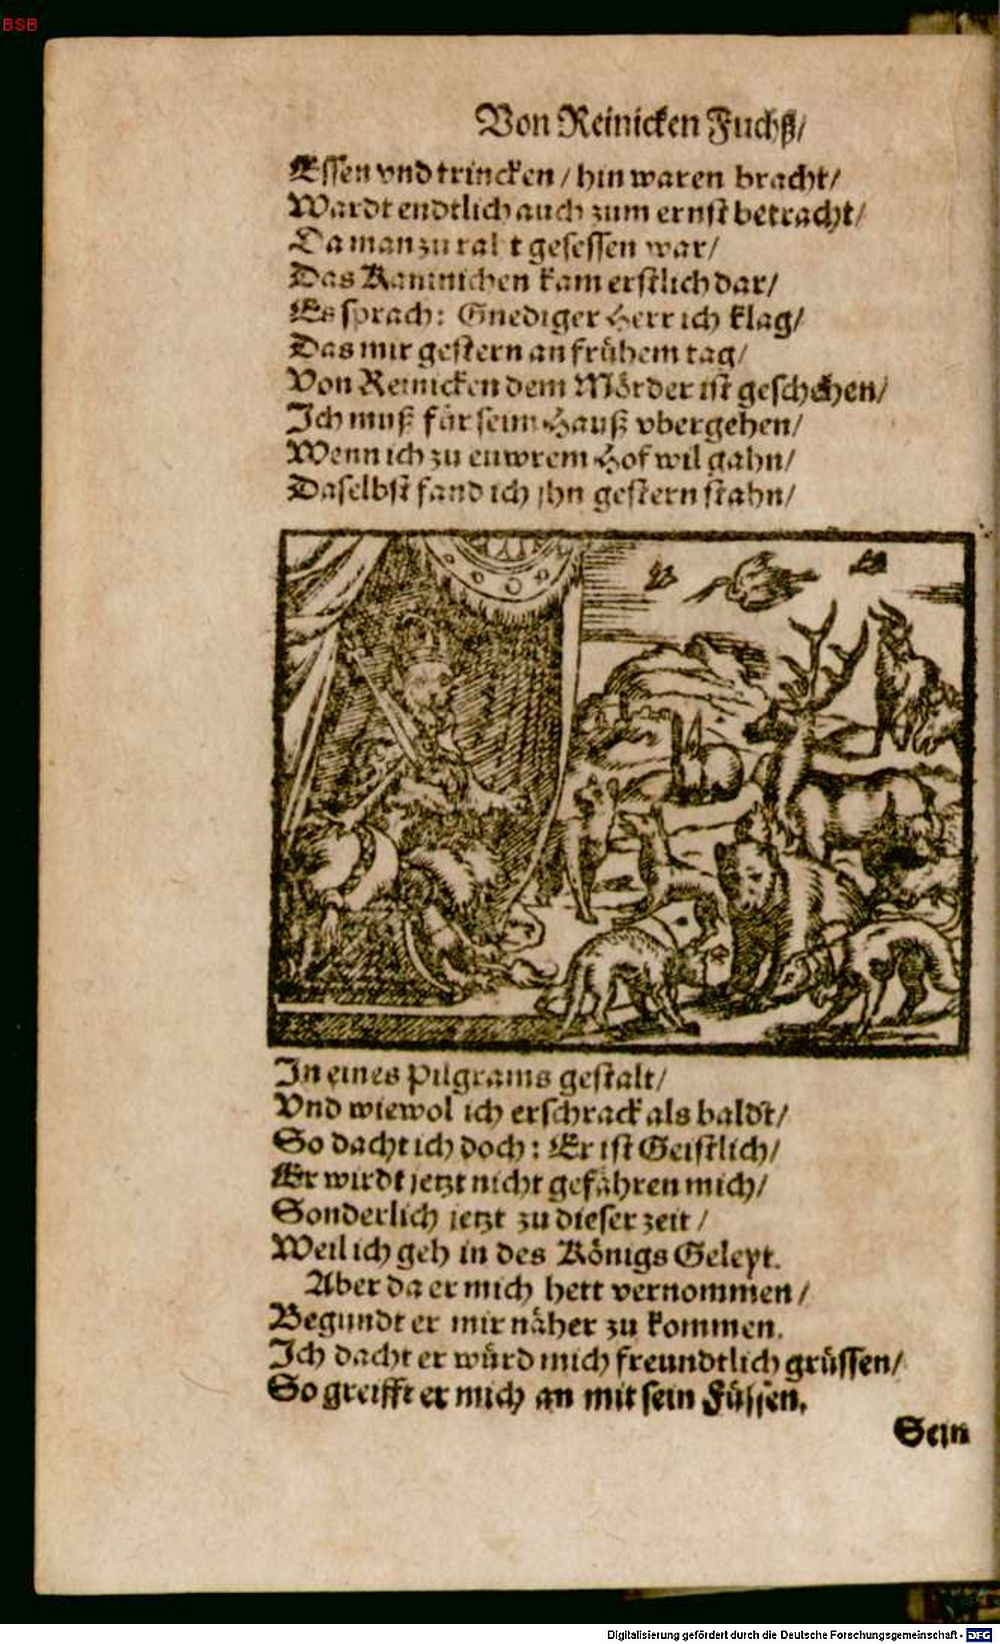 BSB
Von Reinicken Fuchß/
Essen vnd trincken / hin waren bracht/
Wardt endtlich auch zum ernst betracht/
Da man zu gesessen war/
Das Kaninichen kam erstlich dar/
Es sprach: Gnediger Herr ich klag/
Das mir gestern an frühem tag/
Von Reinicken dem Mörder ist geschehen/
Ich muß für seim Hauß vbergehen/
Wenn ich zu euwrem Hof wil gahn/
Daselbst fand ich jhn gestern stahn/
In eines Pilgrams gestalt/
Vnd wiewol ich erschrack als baldt/
So dacht ich doch: Er ist Geistlich/
Er wirdt jetzt nicht gefähren mich/
Sonderlich jetzt zu dieser zeit /
Weil ich geh in des Königs Geleyt.
Aber da er mich hett vernommen /
Begundt er mir näher zu kommen.
Ich dacht er würd mich freundtlich grüssen/
So greifft er mich an mit sein Füssen.
Sein
Digitalisierung gefördert durch die Deutsche Forschungsgemeinschaft - DFG